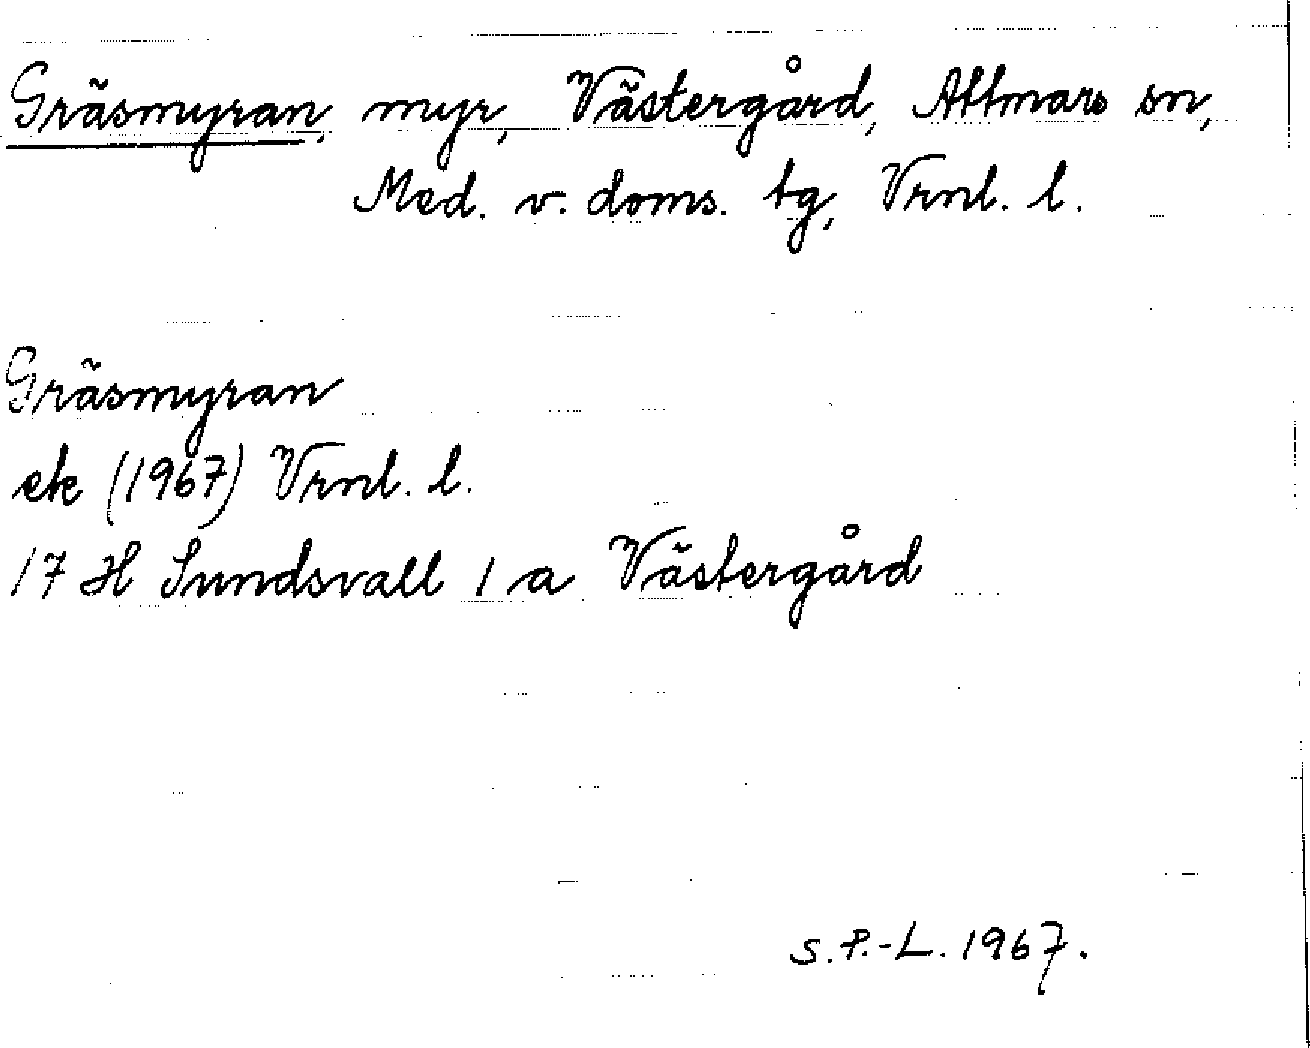 Gräsmyran, myr, Västergård, Attmars sn,
Med. v. doms. tg, Vrnl. l.
Gräsmyran
ek (1967) Vrnl. l.
17 H Sundsvall 1 a Västergård
S.P.-L. 1967.